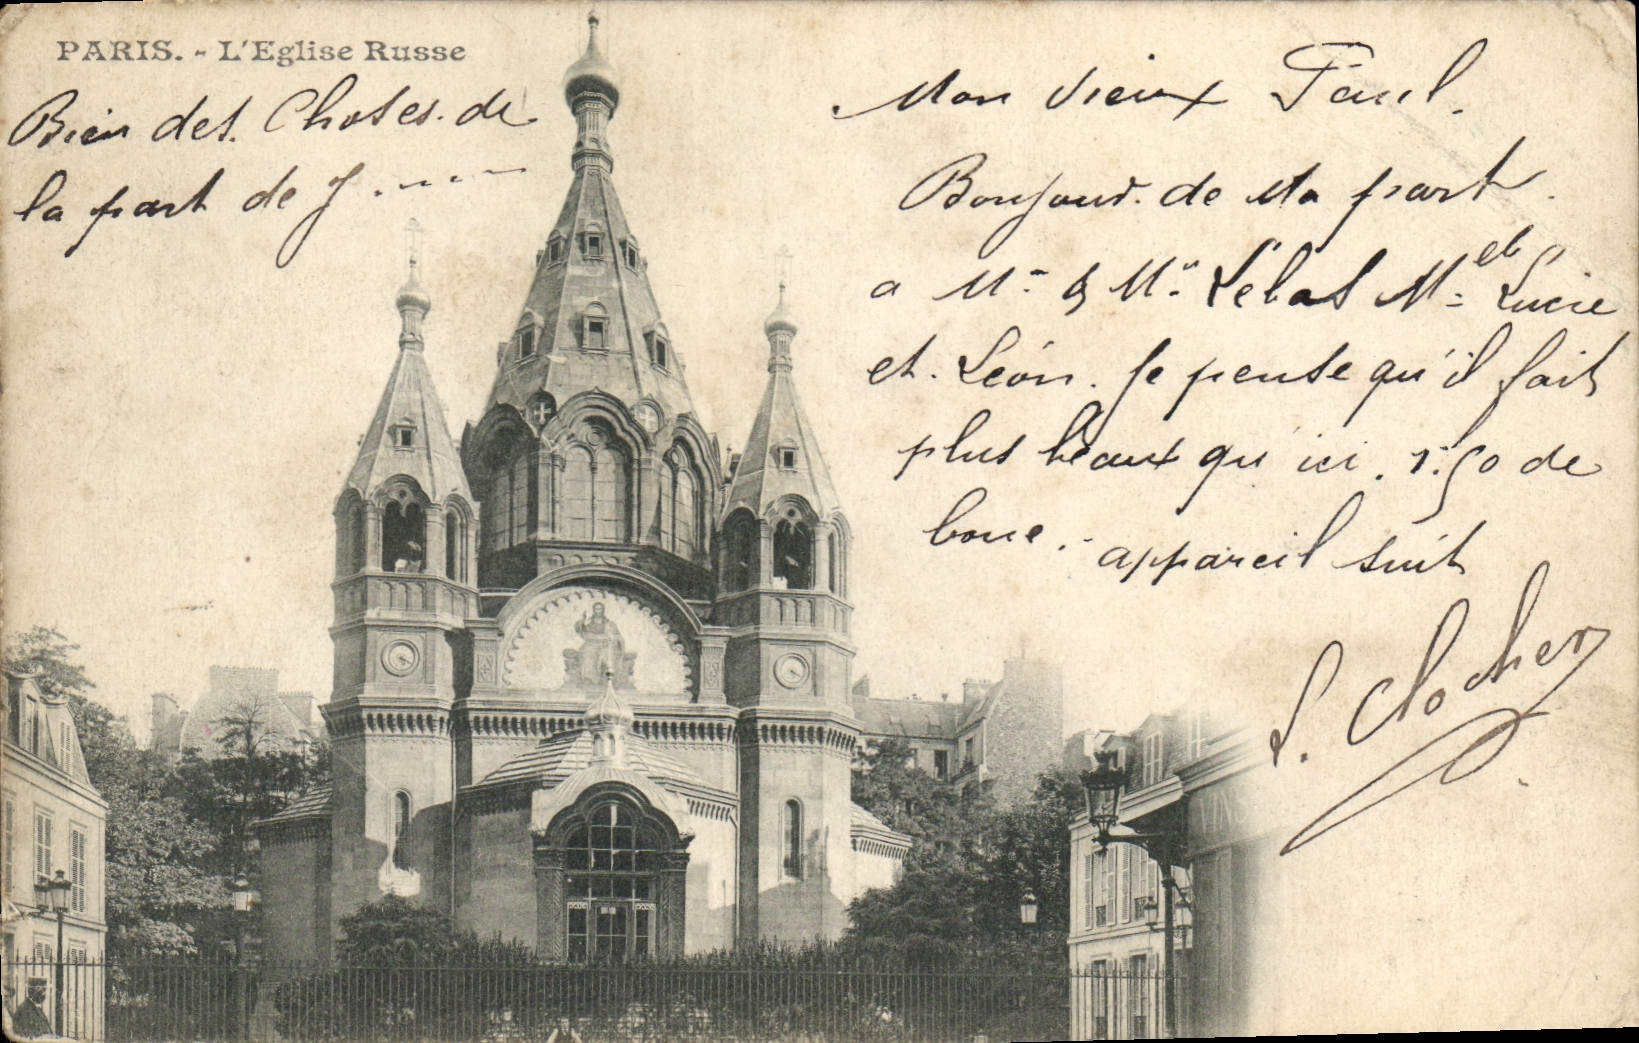 PARIS. - L'Eglise Russe
Bien des Choses. de
la part de J . - - - -
Mon vieux Paul.
Bonjour. de Ma part.
a Mr & Me Lebas Melle Lucie
et. Léon. Je pense qu'il fait
plus beaux qu'ici. 1.50 de
boue. - appareil suit
L. Clocher
VINS